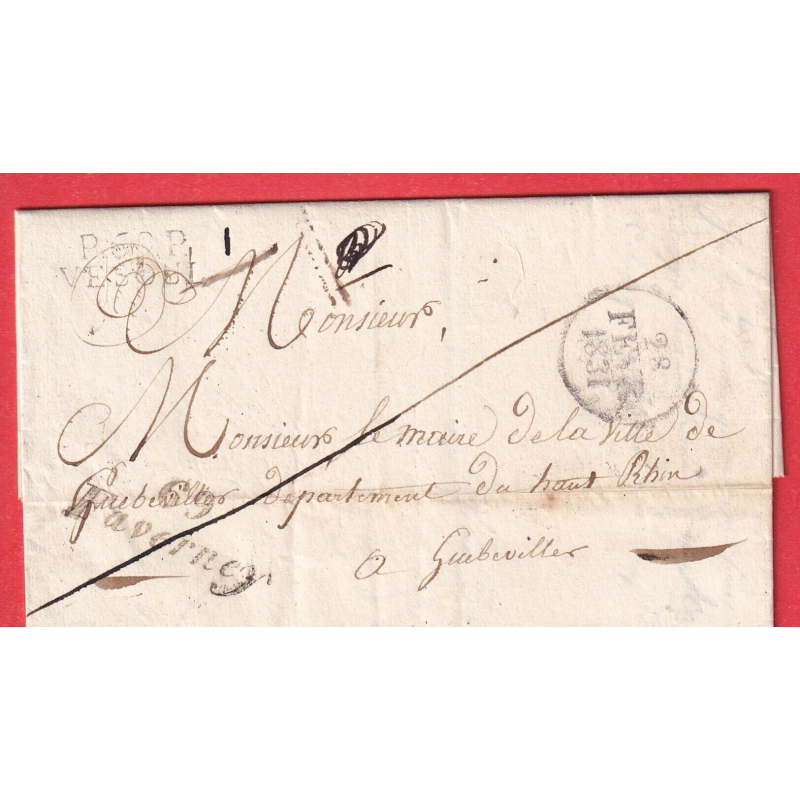 P.69.P.
VESOUL
1
Monsieur,
28
FEVR
1831
Monsieur le maire de la ville de
Guebeviller departement du haut Rhin
69
Faverney
a Guebeviller